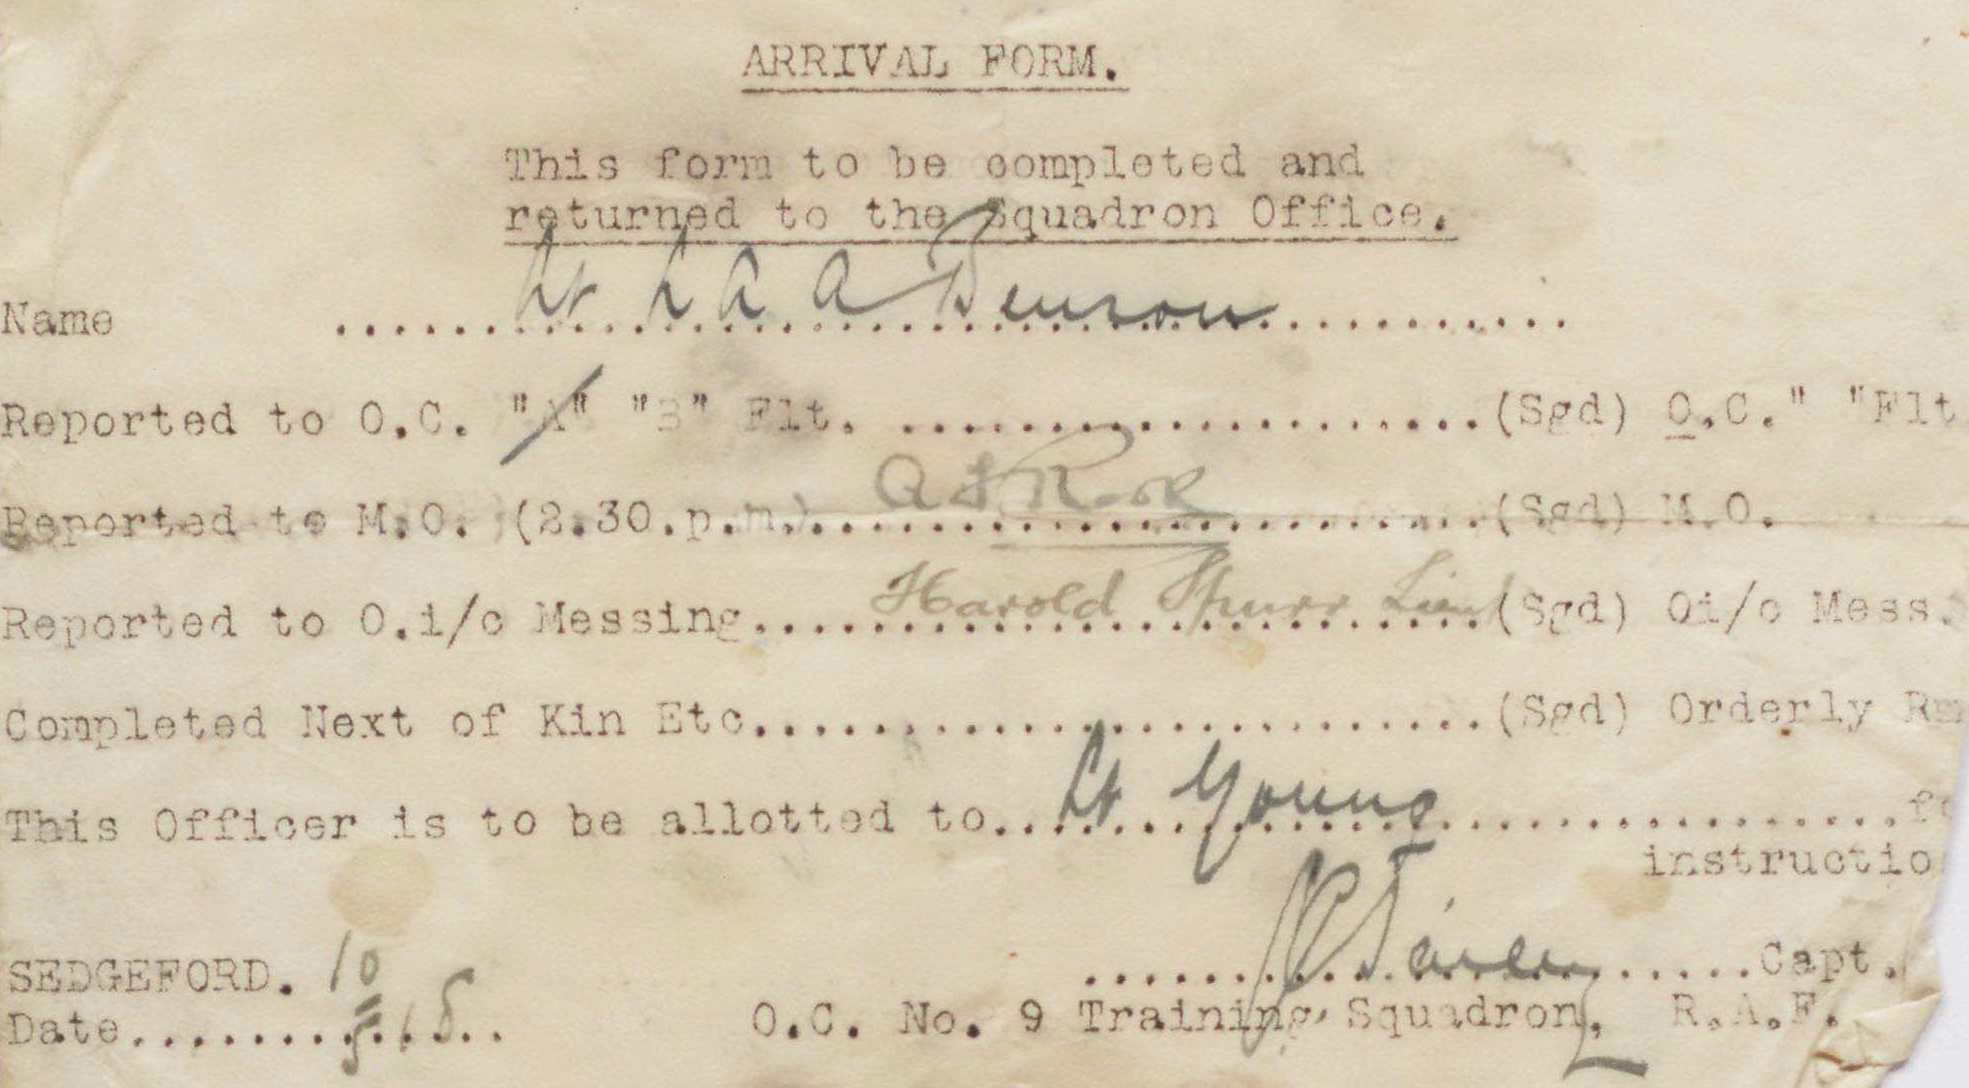 ARRIVAL FORM.
This form to be completed and
returned to the Squadron Office.
Name .......... Lt A A Benson ..........
Reported to O.C. "A" "B" Flt. ....................(Sgd) O.C." "Flt
Reported to M.O. (2.30.p.m.)....................(Sgd) M.O.
Reported to O.i/c Messing.....Harold Spurr Lieut (Sgd) Oi/c Mess.
Completed Next of Kin Etc.........................(Sgd) Orderly Rm
This Officer is to be allotted to...Lt Young..........fo
instructio
SEDGEFORD. 10
Date..................Capt.
O.C. No. 9 Training Squadron, R.A.F.